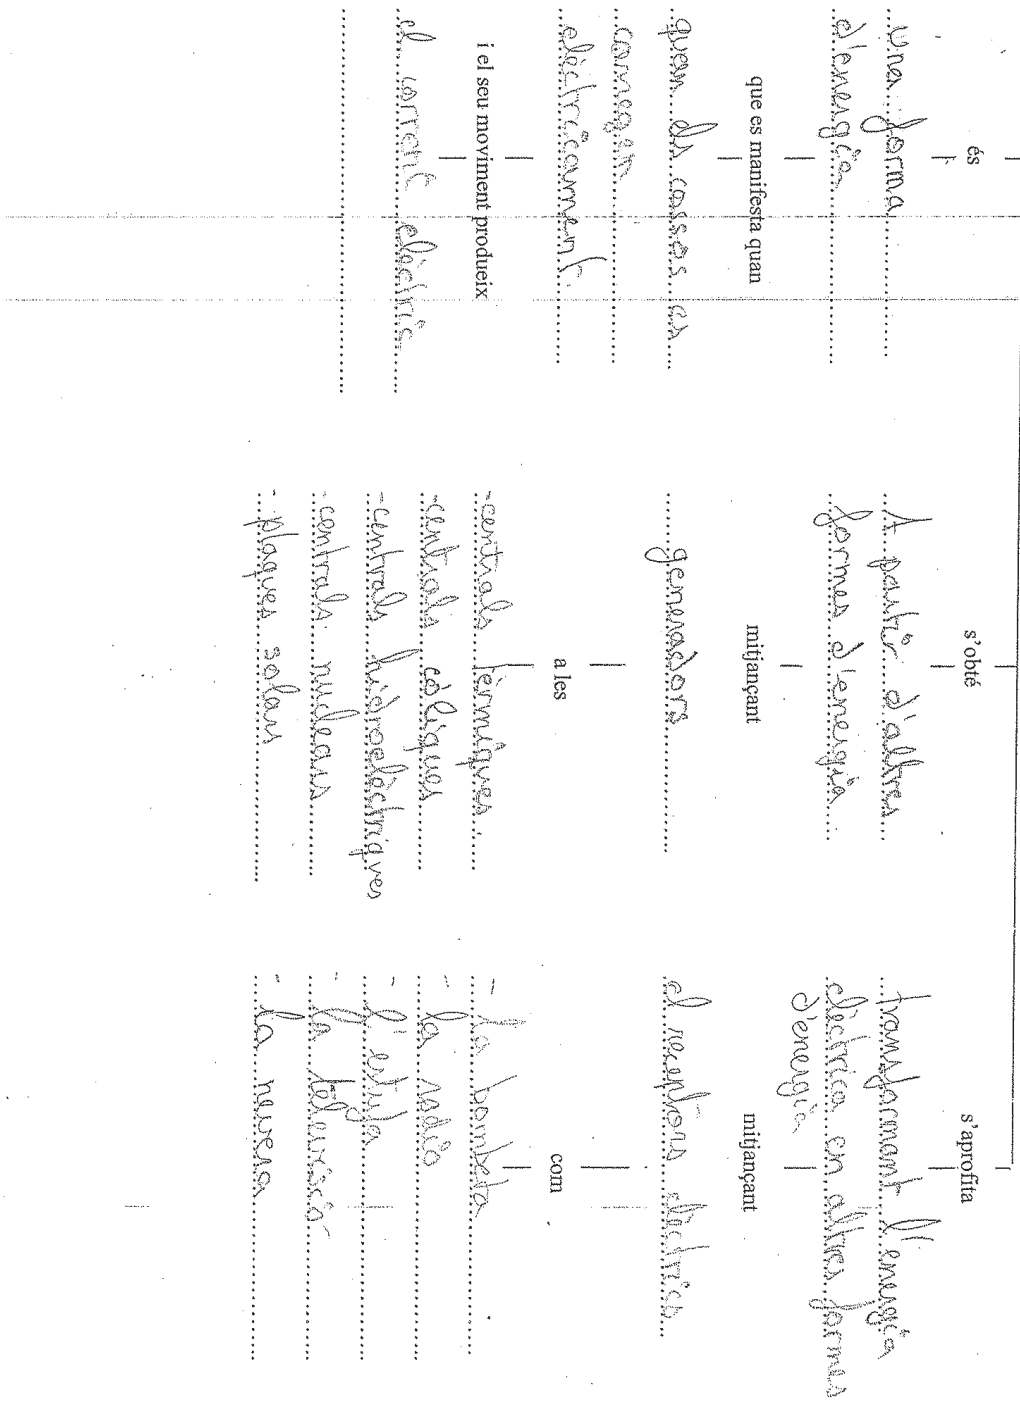 és
Una forma
d'energia
que es manifesta quan
quan els cossos es
carregen
elèctricament.
i el seu moviment produeix
el corrent elèctric
s'obté
A partir d'altres
formes d'energia
mitjançant
generadors
a les
-centrals tèrmiques.
-centrals eòliques
-centrals hidroelèctriques
-centrals nuclears
-plaques solars
s'aprofita
transformant l'energia
elèctrica en altres formes
d'energia
mitjançant
el receptors elèctrics
com
- La bombeta
- la radio
- l'estufa
- la televisió
- la nevera